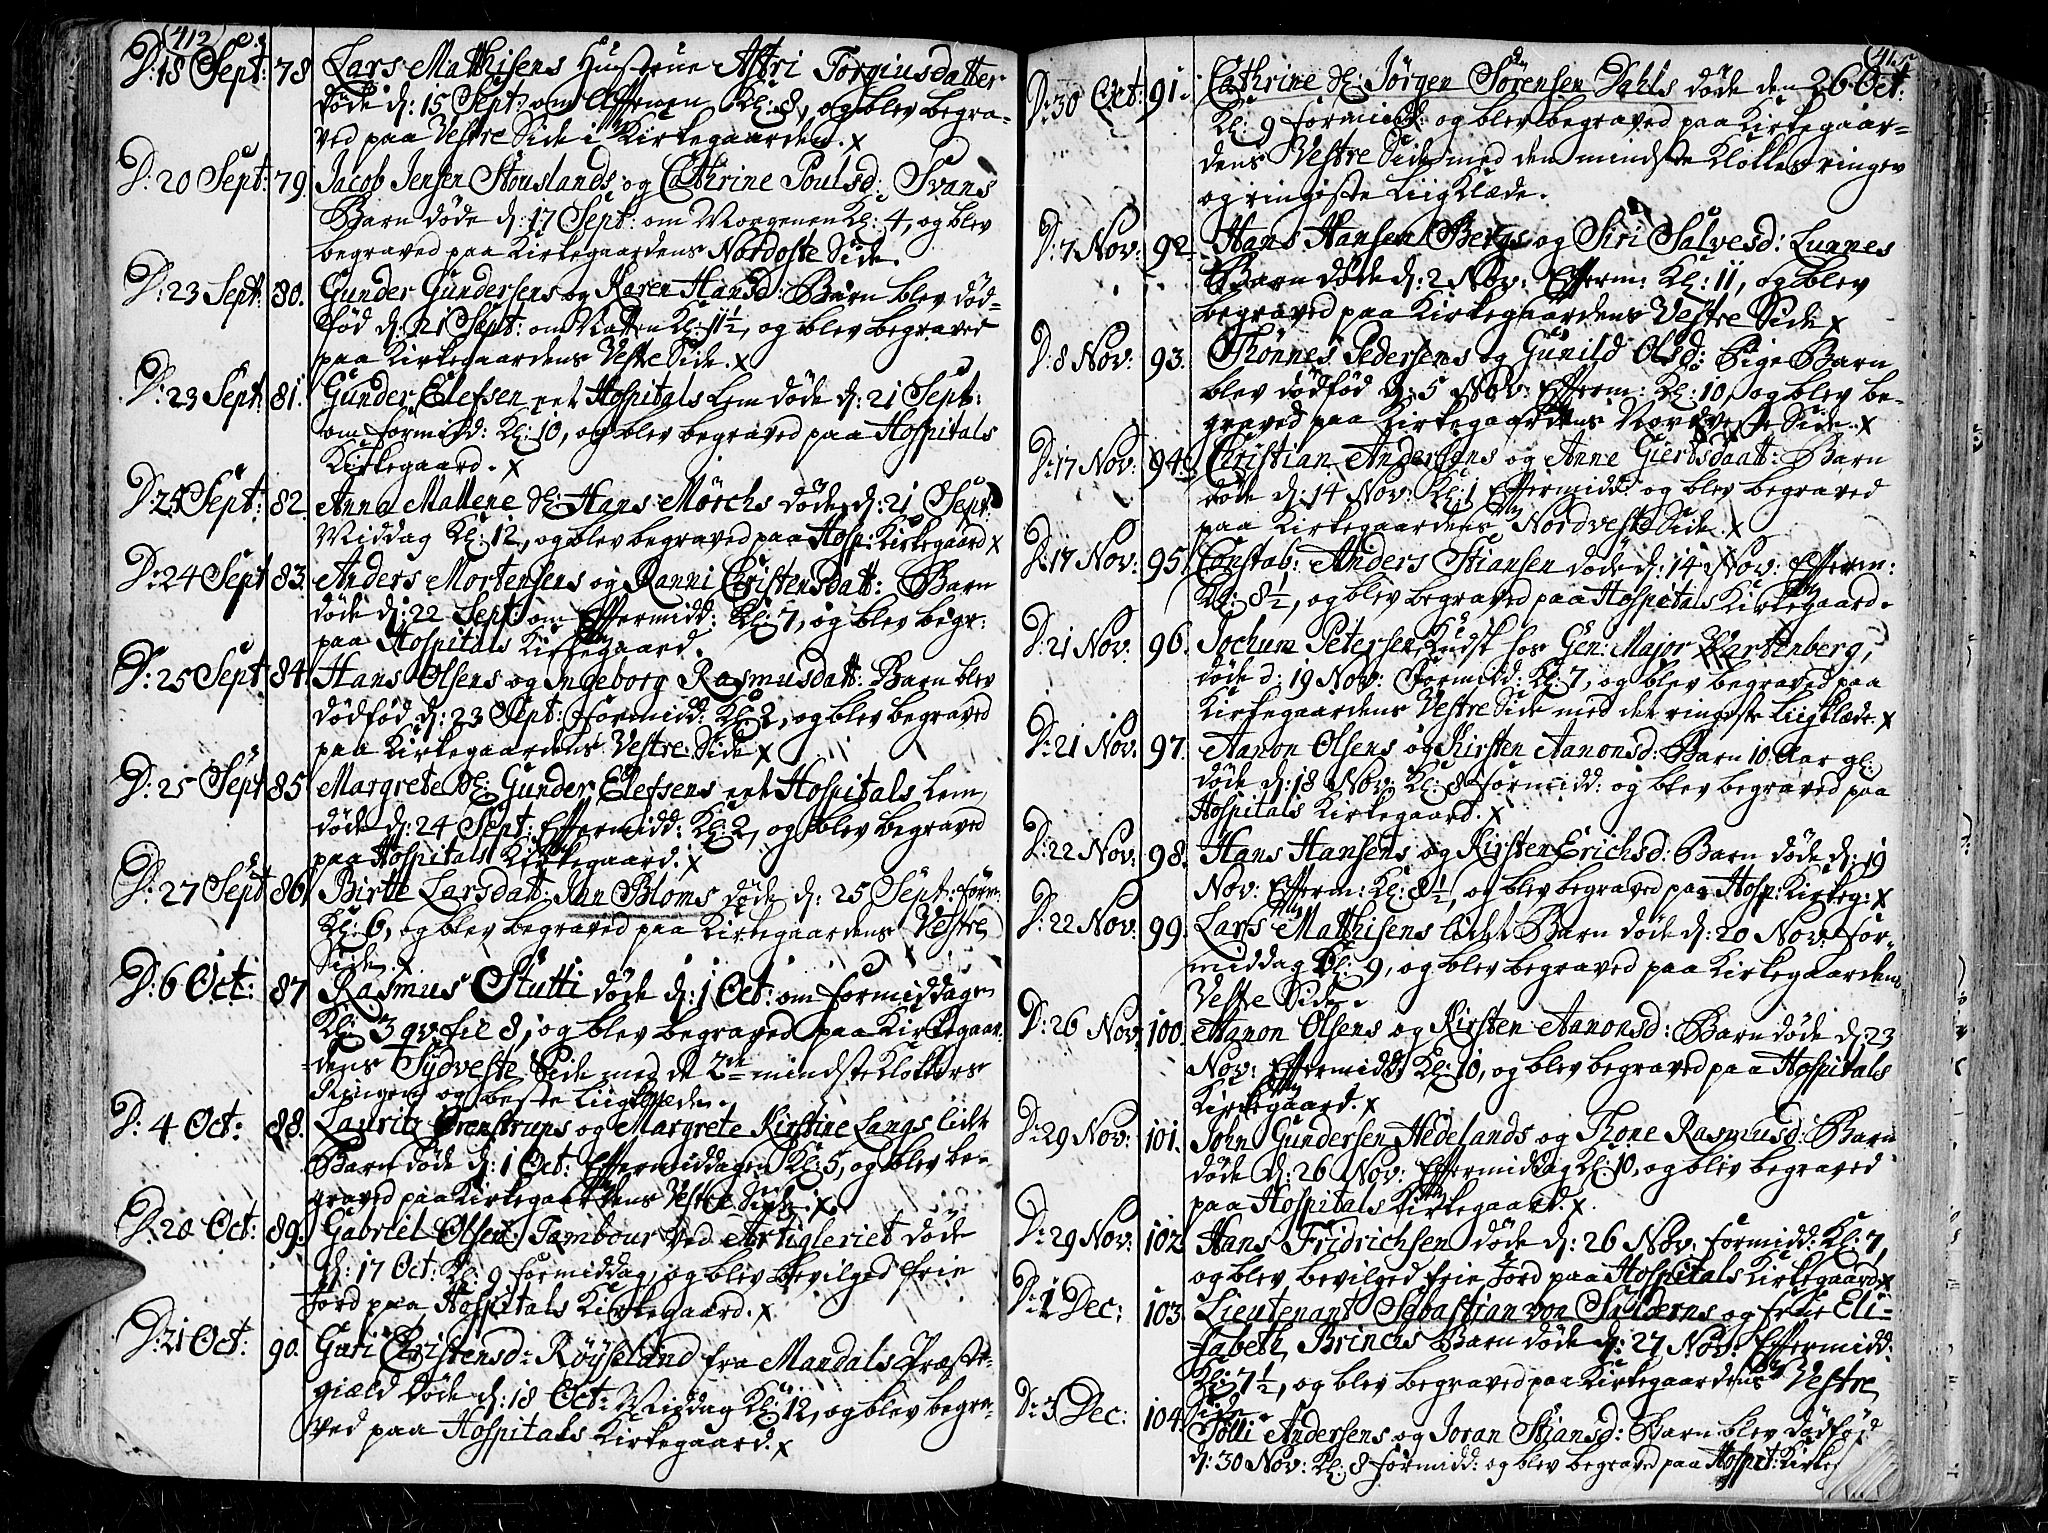 (412)
D: 18 Sept: 78 Lars Mathisens Hustrue Astri Torgiusdatter
døde d: 15 Sept: om Afftenen Kl: 8, og blev begra-
ved paa Vestre Side i Kirkegaarden. x
D: 20 Sept: 79. Jacob Jensen Stouslands og Cathrine Poulsd: Svans
Barn døde d: 17 Sept: om Morgenen Kl: 4, og blev
begraved paa Kirkegaardens Nordoste Side.
D: 23 Sept: 80. Gunder Gundersens og Karen Hansd: Barn blev død-
fød d: 21 Sept: om Natten Kl: 11½, og blev begraved
paa Kirkegaardens Vestre Side. x
D: 23 Sept: 81. Gunder Elefsen eet Hospitals Lem døde d: 21 Sept:
om formidd: Kl: 10, og blev begraved paa Hospitals
Kirkegaard. x
D: 24 Sept: 82. Anna Mallene Sl: Hans Mörchs døde d: 21 Sept:
Middag Kl: 12, og blev begraved paa Hosp: Kirkegaard x
D: 24 Sept 83. Anders Mortensens og Ranni Christensdatt: Barn
døde d: 22 Sept: om Effermidd: Kl: 7, og blev begr:
paa Hospitals Kirkegaard.
D: 25 Sept 84. Hans Olsens og Ingeborg Rasmusdatt: Barn blev
dødfød d: 23 Sept: formidd: Kl: 2, og blev begraved
paa Kirkegaardens Vestre Side x
D: 25 Sept 85. Margrete Sl: Gunder Elefsens eet Hospitals Lem,
døde d: 24 Sept: Effermidd: Kl: 2, og blev begraved
paa Hospitals Kirkegaard. x
D: 27 Sept 86. Birtte Larsdatt: Jan Bloms døde d: 25 Sept: form:
Kl: 6, og blev begraved paa Kirkegaardens Vestre
Side. x
D: 6 Oct: 87 Rasmus Stutti døde d: 1 Oct: om formiddagen
Kl: 3 qv: til 8, og blev begraved paa Kirkegaar-
dens Sydveste Side med de 2de mindste Klokkers
Ringen og beste Liigklæde.
D: 4 Oct: 88. Lauritz Örenstrups og Margrete Kirstine Langs lidet
Barn døde d: 1 Oct: Effermiddagen Kl: 5, og blev be-
graved paa Kirkegaardens Vestre Side. x
D: 20 Oct: 89. Gabriel Olsen Tambour ved Artigleriet døde
d: 17 Oct: Kl: 9 formiddag, og blev bevilged frie
Jord paa Hospitals Kirkegaard. x
D: 21 Oct: 90. Guri Christensd: Röyseland fra Mandals Præste-
giæld døde d: 18 Oct: Middag Kl: 12, og blev begra-
ved paa Hospitals Kirkegaard. x
D: 30 Oct: 91. Cathrine Sl: Jörgen Sörensen Dahls døde den 26 Oct:
Kl: 9 formidd: og blev begraved paa Kirkegaar-
dens Vestre Side med den mindste Klokkes ringen
og ringeste Liig Klæde.
D: 7 Nov: 92. Hans Hansen Bergs og Siri Salvesd: Lunnes
Barn døde d: 2 Nov: Efferm: Kl: 11, og blev
begraved paa Kirkegaardens Vestre Side x
D: 8 Nov: 93. Thönnes Pedersens og Gunild Olsd: Pige Barn
blev dødfød d: 5 Nov: Efferm: Kl: 10, og blev be-
graved paa Kirkegaardens Nordveste Side. x
D: 17 Nov: 94. Christian Andersens og Anne Giertsdaat: Barn
døde d: 14 Nov: Kl: 1 Effermidd: og blev begraved
paa Kirkegaardens Nordveste Side. x
D: 17 Nov: 95. Constab: Anders Stiansen døde d: 14 Nov: Efferm:
Kl: 8½, og blev begraved paa Hospitals Kirkegaard.
D: 21 Nov: 96. Jochum Petersen Kudsk hos Gen: Major Wartenberg,
døde d: 19 Nov: Formidd: Kl: 7, og blev begraved paa
Kirkegaardens Vestre Side med det ringeste Liigklæde. x
D: 21 Nov: 97. Aanon Olsens og Kirsten Aanonsd: Barn 10 Aar gl:
døde d: 18 Nov: Kl: 8 formidd: og blev begraved paa
Hospitals Kirkegaard. x
D: 22 Nov: 98. Hans Hansens og Kirsten Erichsd: Barn døde d: 19
Nov: Efferm: Kl: 8½, og blev begraved paa Hosp: Kirkeg: x
D: 22 Nov: 99. Lars Mathisens lidet Barn døde d: 20 Nov: for-
middag Kl: 9, og blev begraved paa Kirkegaardens
Vestre Side.
D: 26 Nov: 100. Aanon Olsens og Kirsten Aanonsd: Barn døde d: 23
Nov: Effermidd: Kl: 10, og blev begraved paa Hospitals
Kirkegaard. x
D: 29 Nov: 101. John Gundersen Hedelands og Thone Rasmusd: Barn
døde d: 26 Nov: Effermiddag Kl: 10, og blev begraved
paa Hospitals Kirkegaard. x
D: 29 Nov: 102. Hans Fridrichsen døde d: 26 Nov: formidd: Kl: 7,
og blev bevilged frie Jord paa Hospitals Kirkegaard. x
D: 1 Dec: 103. Lieutenant Sebastian von Salderns og frue Eli-
sabeth Brinchs Barn døde d: 27 Nov: Effermidd:
Kl: 7½, og blev begraved paa Kirkegaardens Vestre
Side.
D: 3 Dec: 104. Tolli Andersens og Joran Stiansd: Barn blev dødfød
d: 30 Nov: Kl: 8 formidd: og blev begraved paa Hospit: Kirke